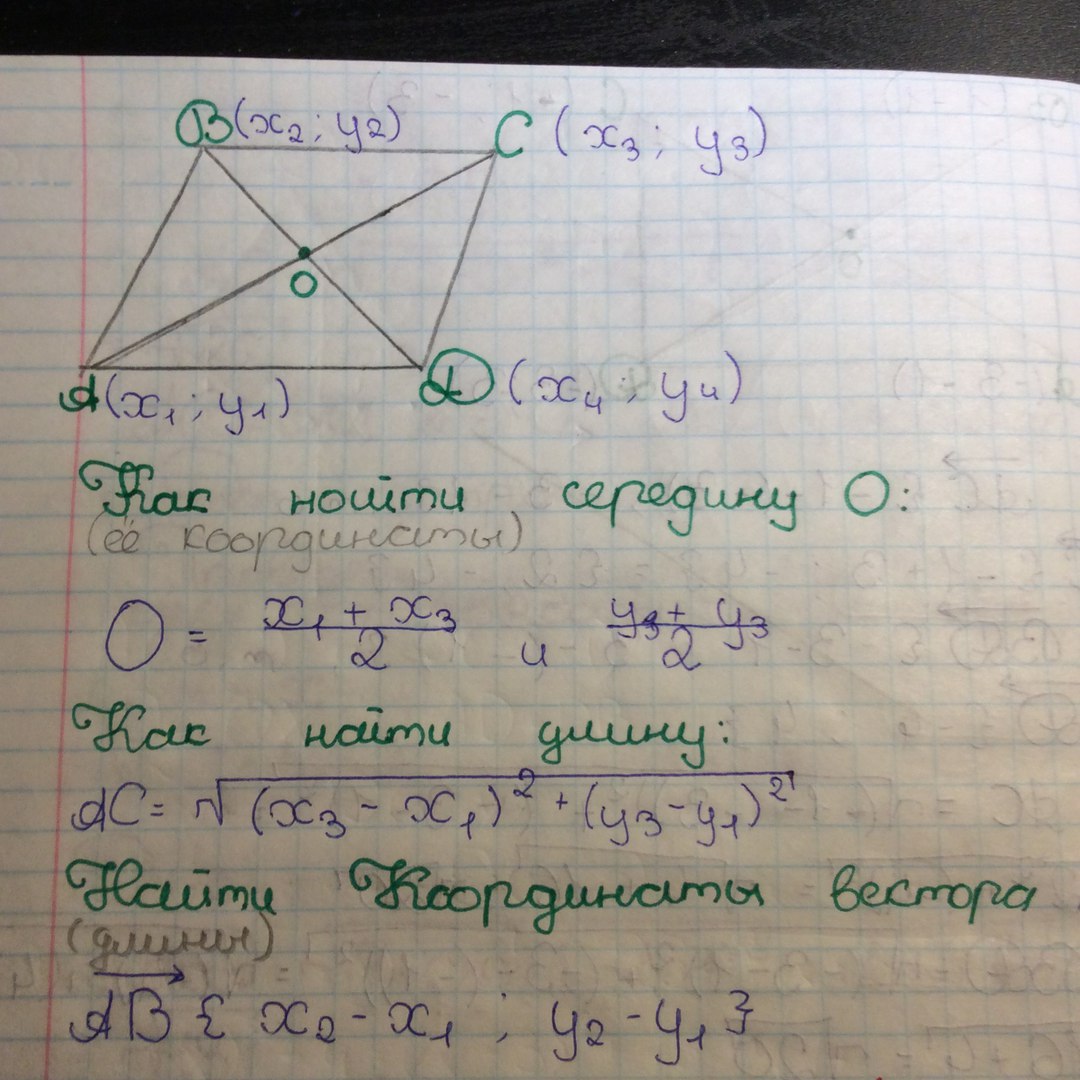 B(x₂; y₂) C (x₃; y₃)
O
A(x₁; y₁) D (x₄; y₄)
Как нойти середину O:
(её координаты)
O = x₁ + x₃ / 2 и y₃ + y₃ / 2
Как найти длину:
AC = √(x₃ - x₁)² + (y₃ - y₁)²
Найти Координаты вектора
(длины)
AB { x₂ - x₁ ; y₂ - y₁ }